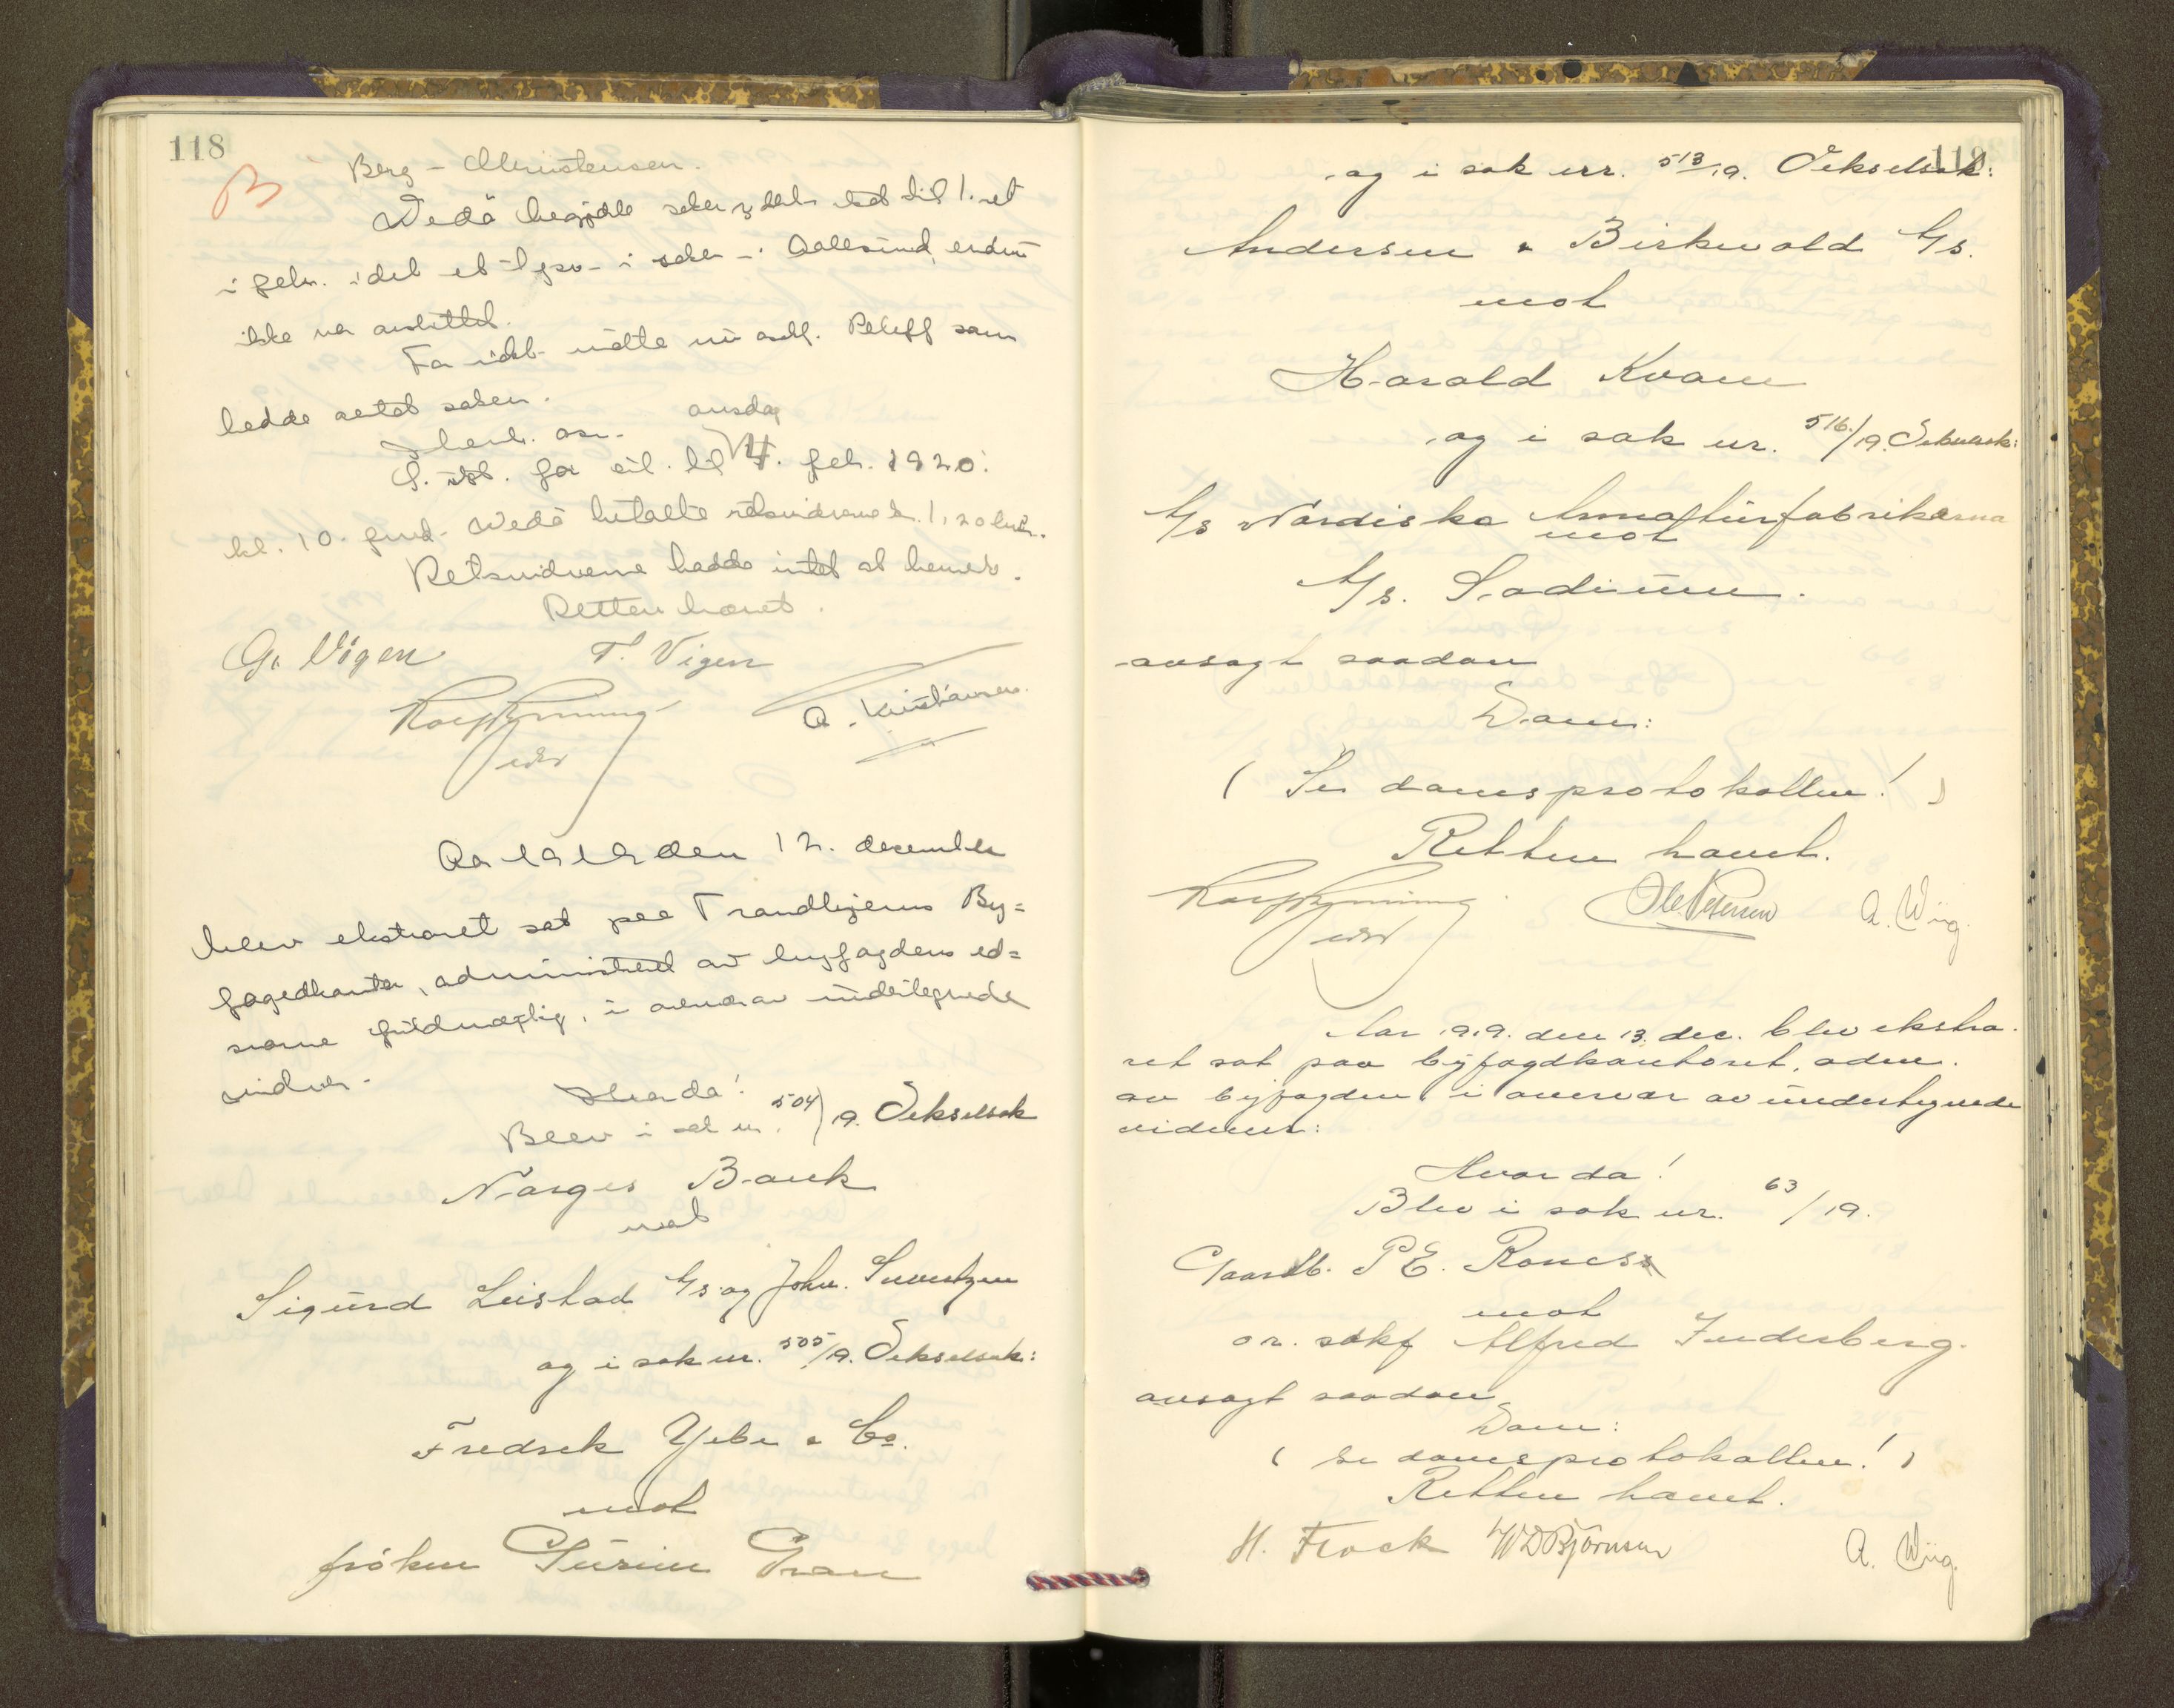 118
B
Berg - Christensen.
Wedö begjærte saken utsat til 1. ret
i febr. idet et i saken i Aalesund endnu
ikke var avsluttet.
For indst. møtte nu osakf. Roloff som
hadde saken.
onsdag
S. uds. for til 4. feb. 1920.
kl. 10. form. Wedö betalte retsvidnene kr. 1,20
Retsvidnerne hadde intet at bemerke.
Retten hævet.
G. Vigen T. Vigen
A. Kristiansen
Aar 1919 den 12. december
blev ekstraret sat paa Trondhjems By=
fogedkontor, administrert av byfogdens ed=
svorne fuldmægtig, i overvær av undertegnede
vidner.
Hvorda!
Blev i sak nr. 504/19. Vekselsak
Norges Bank
mot
Sigurd Leistad A/s og John. Sivertzen
og i sak nr. 505/19. Vekselsak:
Fredrik Ybe & Co.
mot
fröken Gran
og i sak nr. 513/19. Vekselsak:
Andersen & Birkwold A/s.
mot
Harald Kvam
og i sak nr. 516/19. Vekselsak:
A/s Nordiska Armaturfabrikerna
mot
A/s. Ladium.
avsagt saadan
Dom:
( Se domsprotokollen! )
Retten hævet.
Ole Petersen A. Wiig.
Aar 1919. den 13. dec. blev ekstra-
ret sat paa byfogdkontoret, adm.
av byfogden i overvær av undertegnede
vidner:
Hvorda!
Blev i sak nr. 63/19.
Gaardb. P. E.
mot
or. sakf Alfred Inderberg.
avsagt saadan
Dom:
( se domsprotokollen! )
Retten hævet.
H. Flock Bjørnsen A. Wiig.